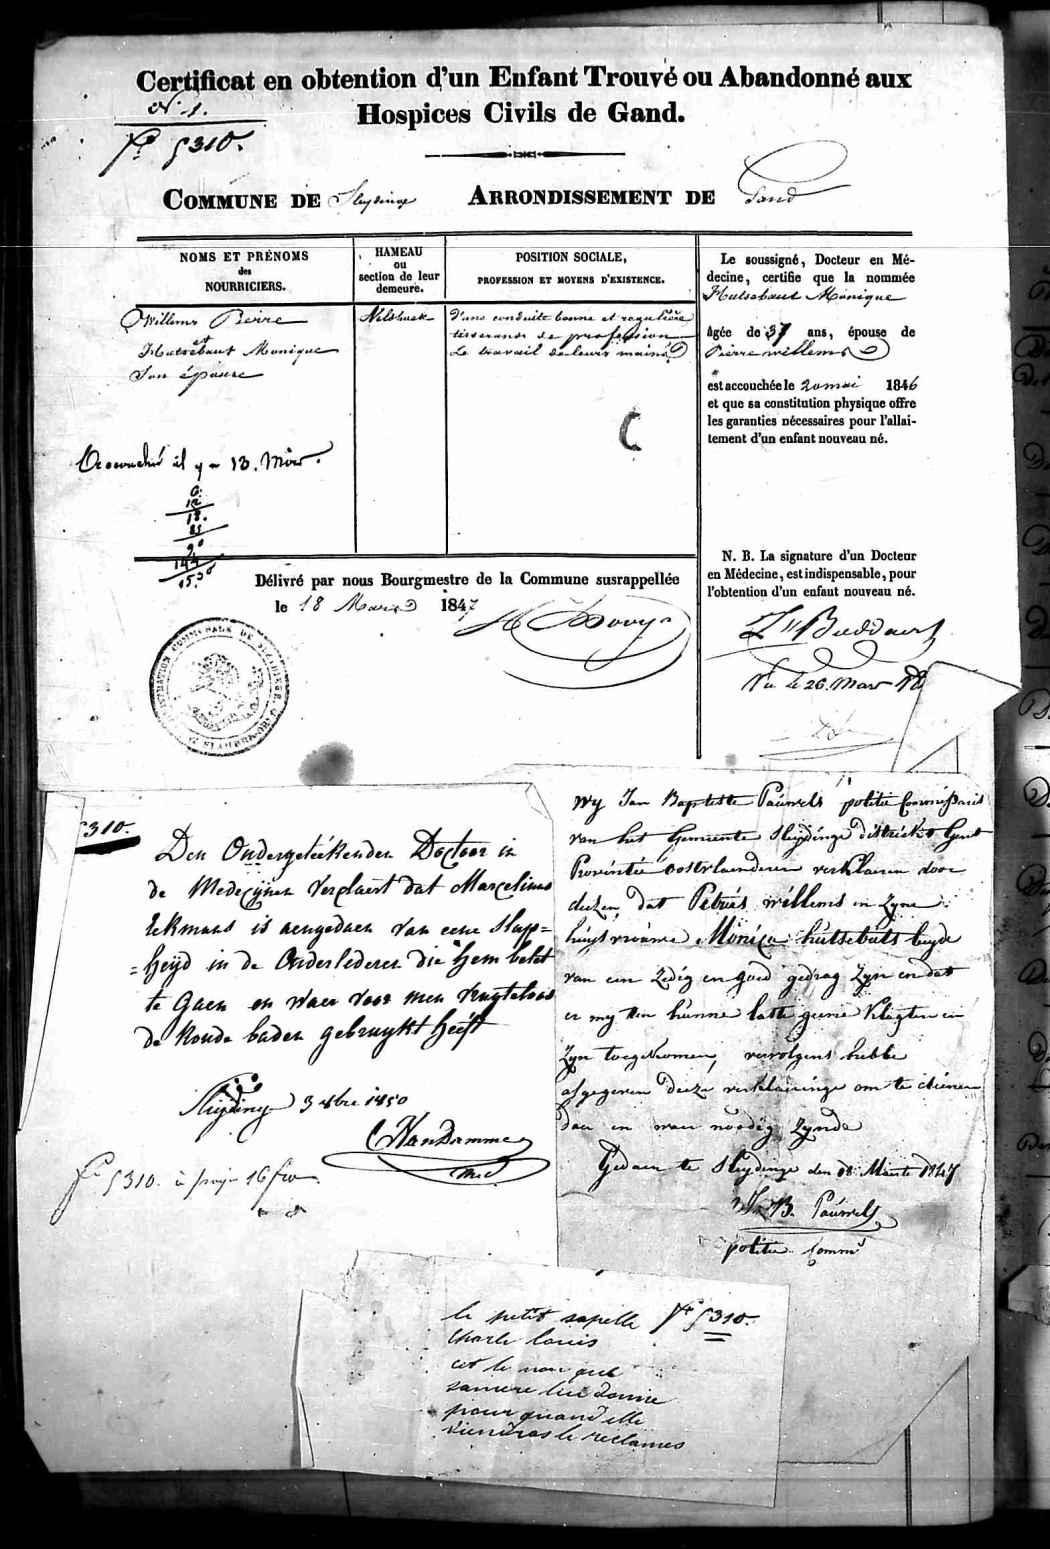 Certificat en obtention d'un Enfant Trouvé ou Abandonné aux
Hospices Civils de Gand.
N. 1.
5310.
COMMUNE DE Sleydinge ARRONDISSEMENT DE Gand
NOMS ET PRÉNOMS
des
NOURRICIERS.
Willems Pierre
et
Hutsebaut Monique
Son épouse
Accouché il y a 13. Mois.
6
12
18.
144
15,30
HAMEAU
ou
section de leur
demeure.
POSITION SOCIALE,
PROFESSION ET MOYENS D'EXISTENCE.
D'une conduite bonne et regulière
tisserands de profession
Le travail de leurs mains
Le soussigné, Docteur en Mé-
decine, certifie que la nommée
Hutsebaut Monique
âgée de 37 ans, épouse de
Pierre willems
est accouchée le 20 mai 1846
et que sa constitution physique offre
les garanties nécessaires pour l'allai-
tement d'un enfant nouveau né.
N. B. La signature d'un Docteur
en Médecine, est indispensable, pour
l'obtention d'un enfant nouveau né.
Vu le 26 Mars
Délivré par nous Bourgmestre de la Commune susrappellée
le 18 Mars 1847
5310.
Den Ondergeteekenden Doctoor in
de Medecynen verclaert dat Marcelinus
Eekmans is aengedaen van eene slap=
=heyd in de Onderlederen die hem belet
te Gaen en waer voor men vrugteloos
de koude baden gebruykt heeft
Sleydinge 3 8bre 1850
C VanDamme
Med
5310. à payer 16 fr
Wy Jan Baptiste Pauwels politie Commissaris
van het Gemeente Sleydinge district Gent
Provintie Oostvlaenderen verklaeren door
deezen, dat Petrus willems en zyne
huysvrouwe Monica hutsebuts beyde
van een zedig en goed gedrag zyn en dat
er my ten hunne laste geene klagten en
zyn toegekoomen, vervolgens hebbe
afgegeven deeze verklaeringe om te dienen
daer en waer noodig zynde
Gedaen te Sleydinge den 18 Maerte 1847
J. B. Pauwels
politie Comm
le petit sapelle 5310.
Charle louis
cet le nom que
sa mere lui donne
pour quand elle
viendras le reclames